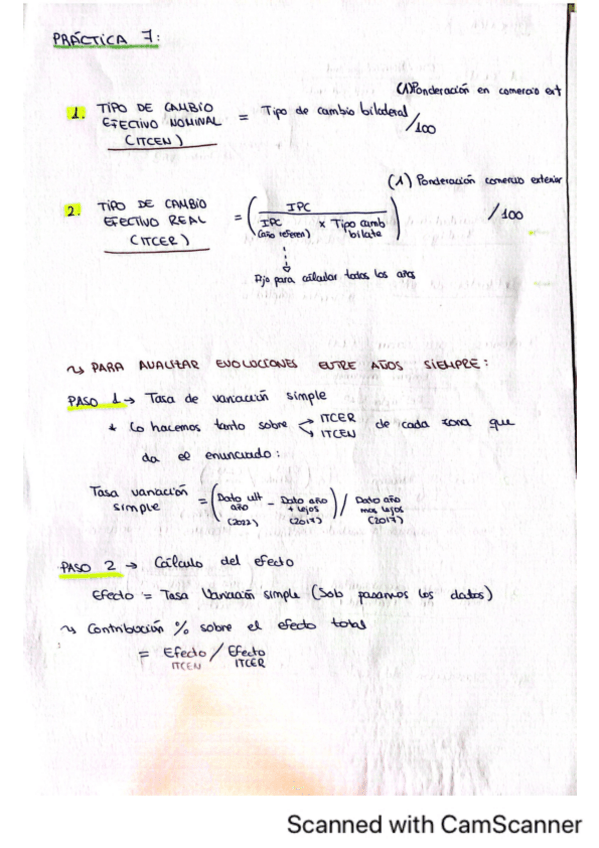 PRÁCTICA 7:
(1) Ponderación en comercio ext
1. TIPO DE CAMBIO EFECTIVO NOMINAL (ITCEN) = Tipo de cambio bilateral /100
(1) Ponderación comercio exterior
2. TIPO DE CAMBIO EFECTIVO REAL (ITCER) = ( IPC / IPC (año referen) x Tipo camb bilate ) /100
Fijo para calcular todos los años
↝ PARA ANALIZAR EVOLUCIONES ENTRE AÑOS SIEMPRE:
PASO 1 → Tasa de variación simple
* Lo hacemos tanto sobre ITCER ITCEN de cada zona que
da el enunciado:
Tasa variación simple = ( Dato ult año (2022) - Dato año + lejos (2017) ) / Dato año mas lejos (2017)
PASO 2 → Cálculo del efecto
Efecto = Tasa Variación simple (Sob pasamos los datos)
↝ Contribución % sobre el efecto total
= Efecto ITCEN / Efecto ITCER
Scanned with CamScanner